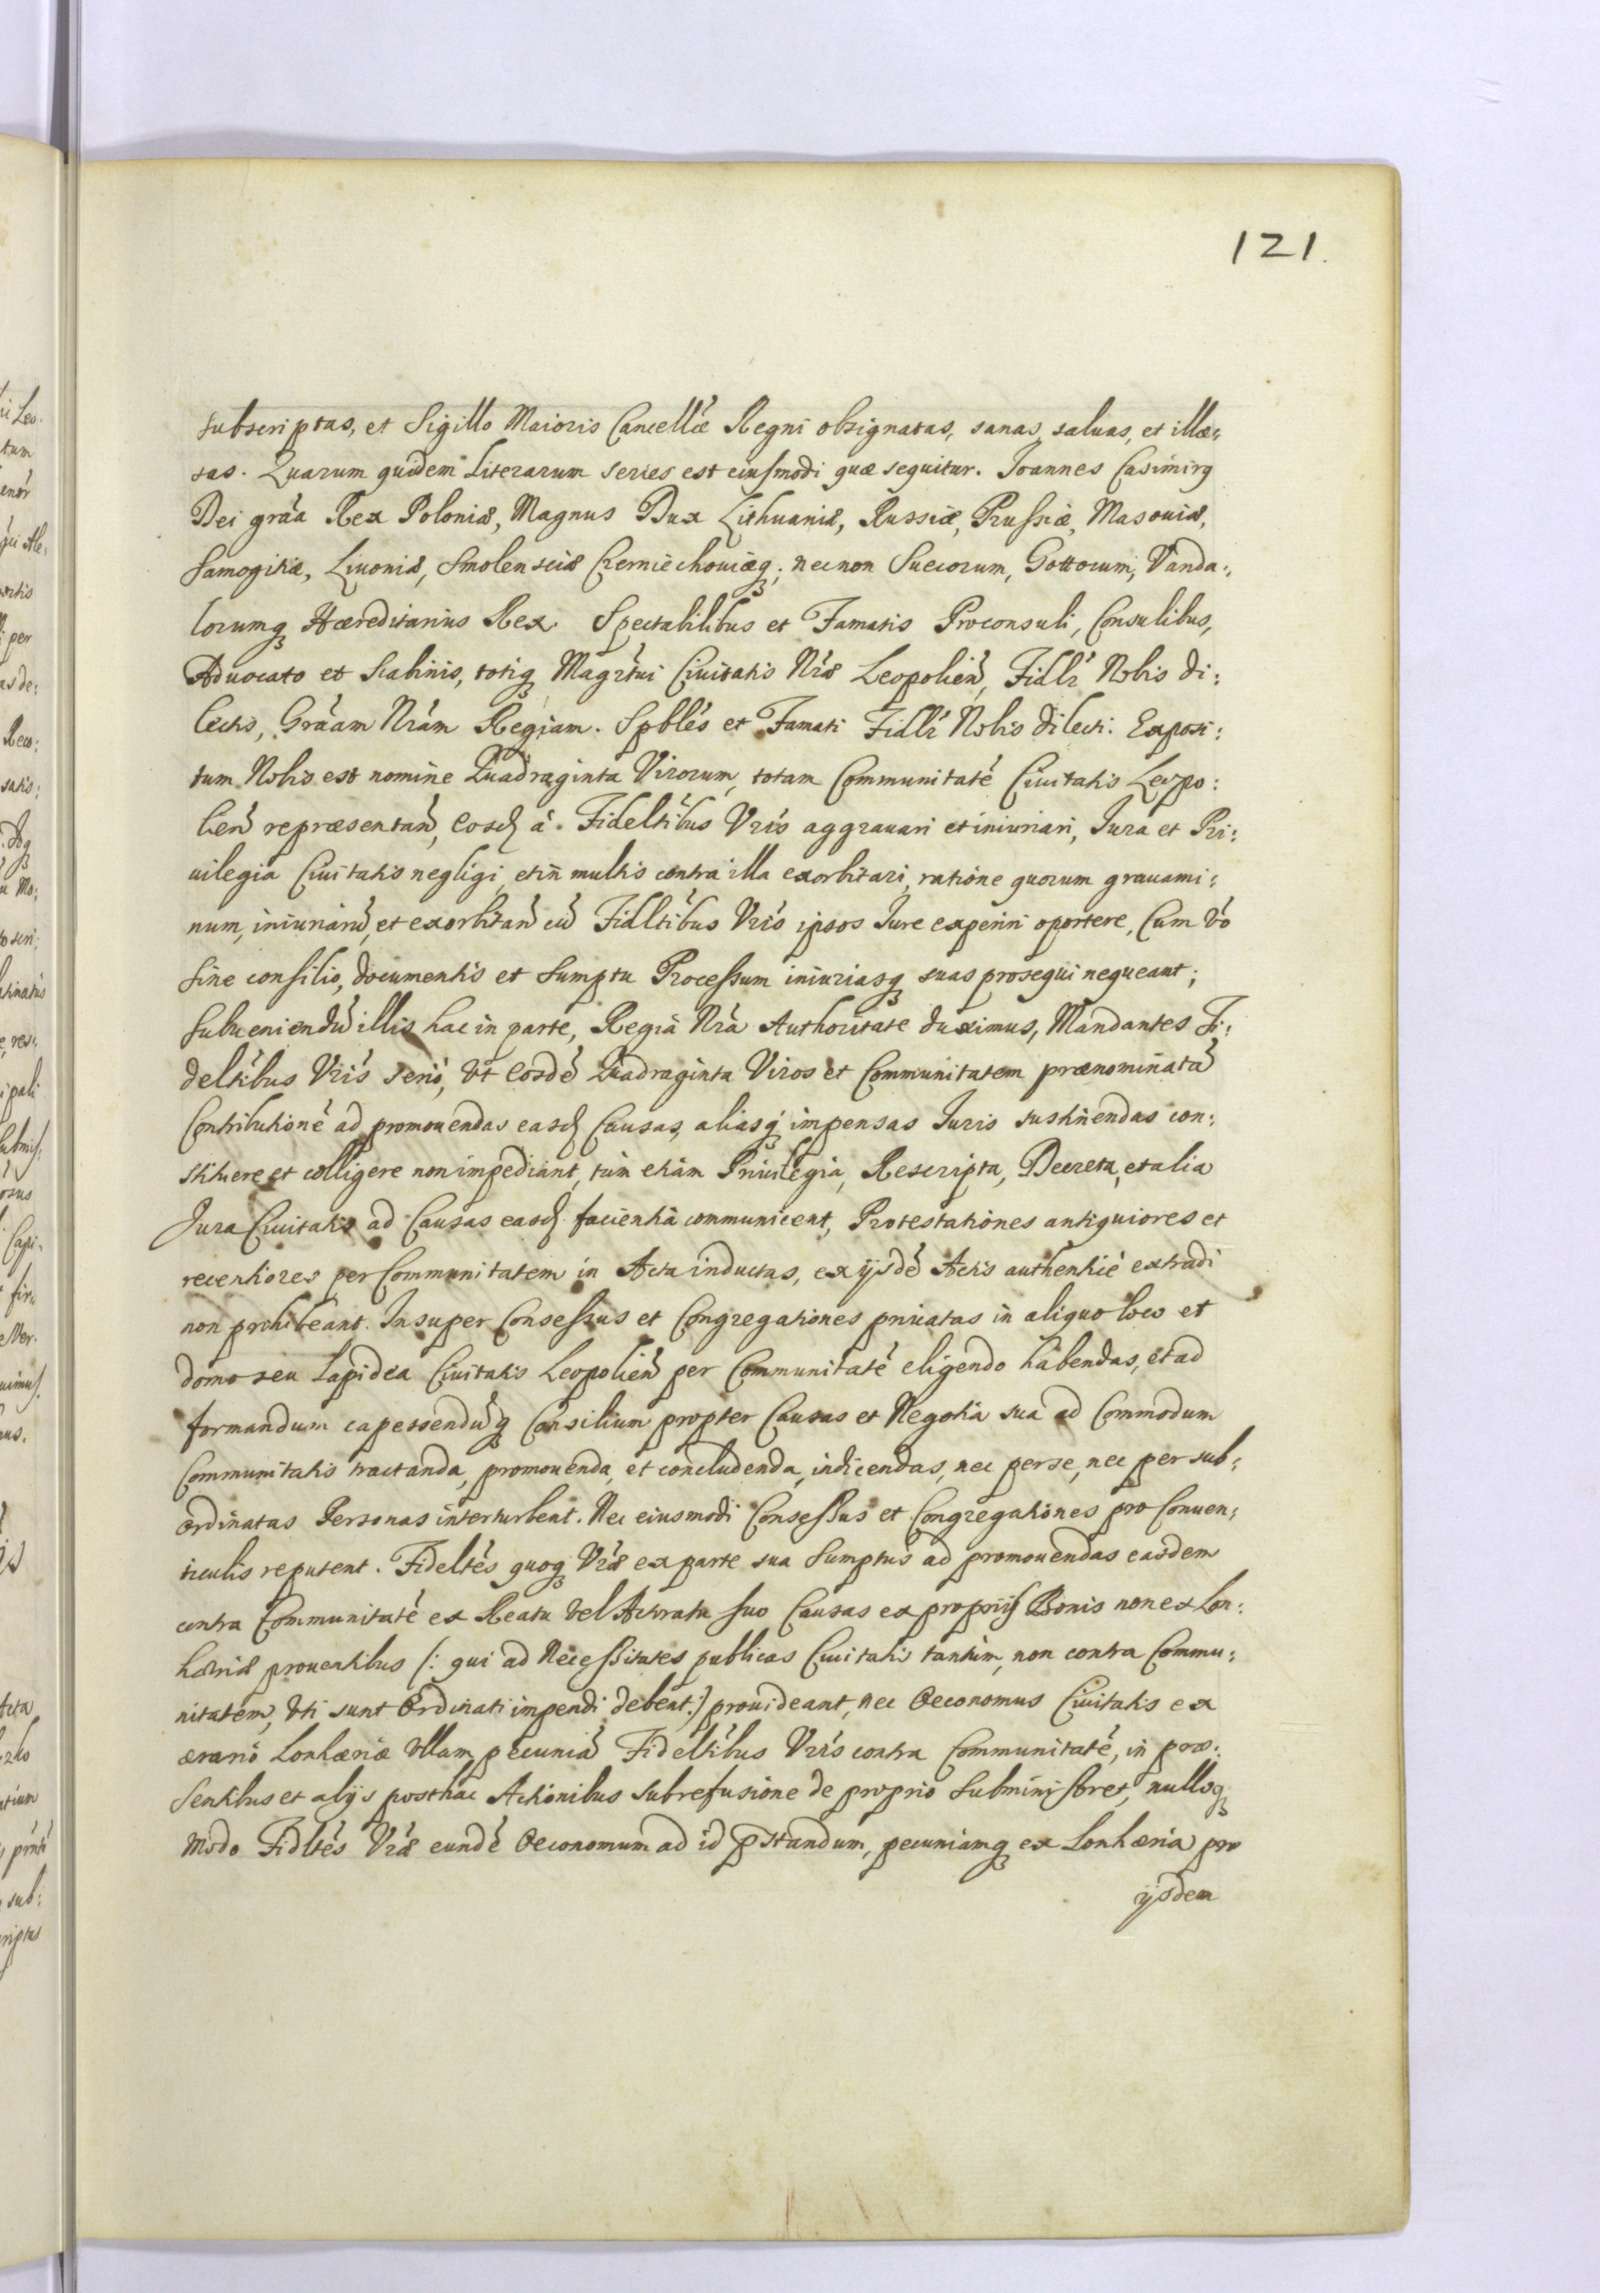 121.
subscriptas, et Sigillo Maioris Cancellæ Regni obsignatas, sanas, saluas, et illæ:
sas. Quarum quidem Literarum series est eiusmodi quæ sequitur. Joannes Casimirg
Dei grãa Rex Poloniæ, Magnus Dux Lithuaniæ, Russiæ, Prussiæ, Masouiæ,
Samogitiæ, Liuoniæ, Smolensciæ Czerniechouiæq; necnon Suecorum, Gottorum, Vanda:
lorumq Hæreditarius Rex. Spectabilibus et Famatis Proconsuli, Consulibus,
Aduocato et Scabinis, totiq Magrtui Ciuitatis Nræ Leopolien, Fidlr Nobis di:
lectis, Grãam Nrãm Regiam. Spbles et Famati Fidlr Nobis dilecti. Exposi:
tum Nobis est nomine Quadraginta Virorum, totam Communitatẽ Ciuitatis Leopo:
lien repræsentan, eosd à Fideltibus Vris aggrauari et iniuriari, Jura et Pri:
uilegia Ciuitatis negligi, et in multis contra illa exorbitari, ratione quorum grauami:
num, iniuriarũ, et exorbitan cũ Fidltibus Vris ipsos Jure experiri oportere, Cum vo
sine consilio, documentis et sumptu Processum iniuriasq suas prosequi nequeant;
Subueniendũ illis hac in parte, Regiâ Nrã Authoritate duximus, Mandantes Fi:
deltibus Vris serio, vt eosdẽ Quadraginta Viros et Communitatem prænominatã
Contributionẽ ad promouendas easd Causas, aliasq impensas Juris sustinendas con:
stituere et colligere non impediant, tùm etiam Priuilegia, Rescripta, Decreta, et alia
Jura Ciuitatis ad Causas easd facientia communicent, Protestationes antiquiores et
recentiores per Communitatem in Acta inductas, ex ijsdẽ Actis authenticè extradi
non prohibeant. Insuper Consessus et Congregationes priuatas in aliquo loco et
domo seu Lapidea Ciuitatis Leopolien per Communitatẽ eligendo habendas, et ad
formandum capessendũq Consilium propter Causas et Negotia sua ad Commodum
Communitatis tractanda, promouenda, et concludenda, indicendas, nec per se, nec per sub:
ordinatas Personas interturbent. Nec eiusmodi Consessus et Congregationes pro Conuen:
ticulis reputent. Fideltes quoq Vræ ex parte sua Sumptus ad promouendas easdem
contra Communitatẽ ex Reatu vel Actoratu suo Causas ex proprijs Bonis non ex Lon:
hæriæ prouentibus (: qui ad Necessitates publicas Ciuitatis tantùm, non contra Commu:
nitatem, vti sunt Ordinati impendi debent:) prouideant, nec Oeconomus Ciuitatis ex
ærario Lonhæriæ vllam pecuniã Fideltibus Vris contra Communitatẽ, in præ:
sentibus et alijs posthac Actionibus sub refusione de proprio subministret, nulloq
modo Fidltes Vræ eundẽ Oeconomum ad id pstandum, pecuniamq ex Lonhæria pro
ijsdem